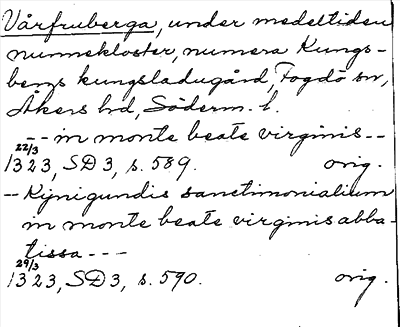 Vårfruberga, under medeltiden
nunnekloster, numera Kungs-
bergs kungsladugård, Fogdö sn,
Åkers hd, Söderm. l.
-- in monte beate virginis --
22/3
1323, SD 3, s. 589. orig.
-- Kijnigundis sanctimonialium
in monte beate virginis abba-
tissa ---
29/3
1323, SD 3, s. 590. orig.